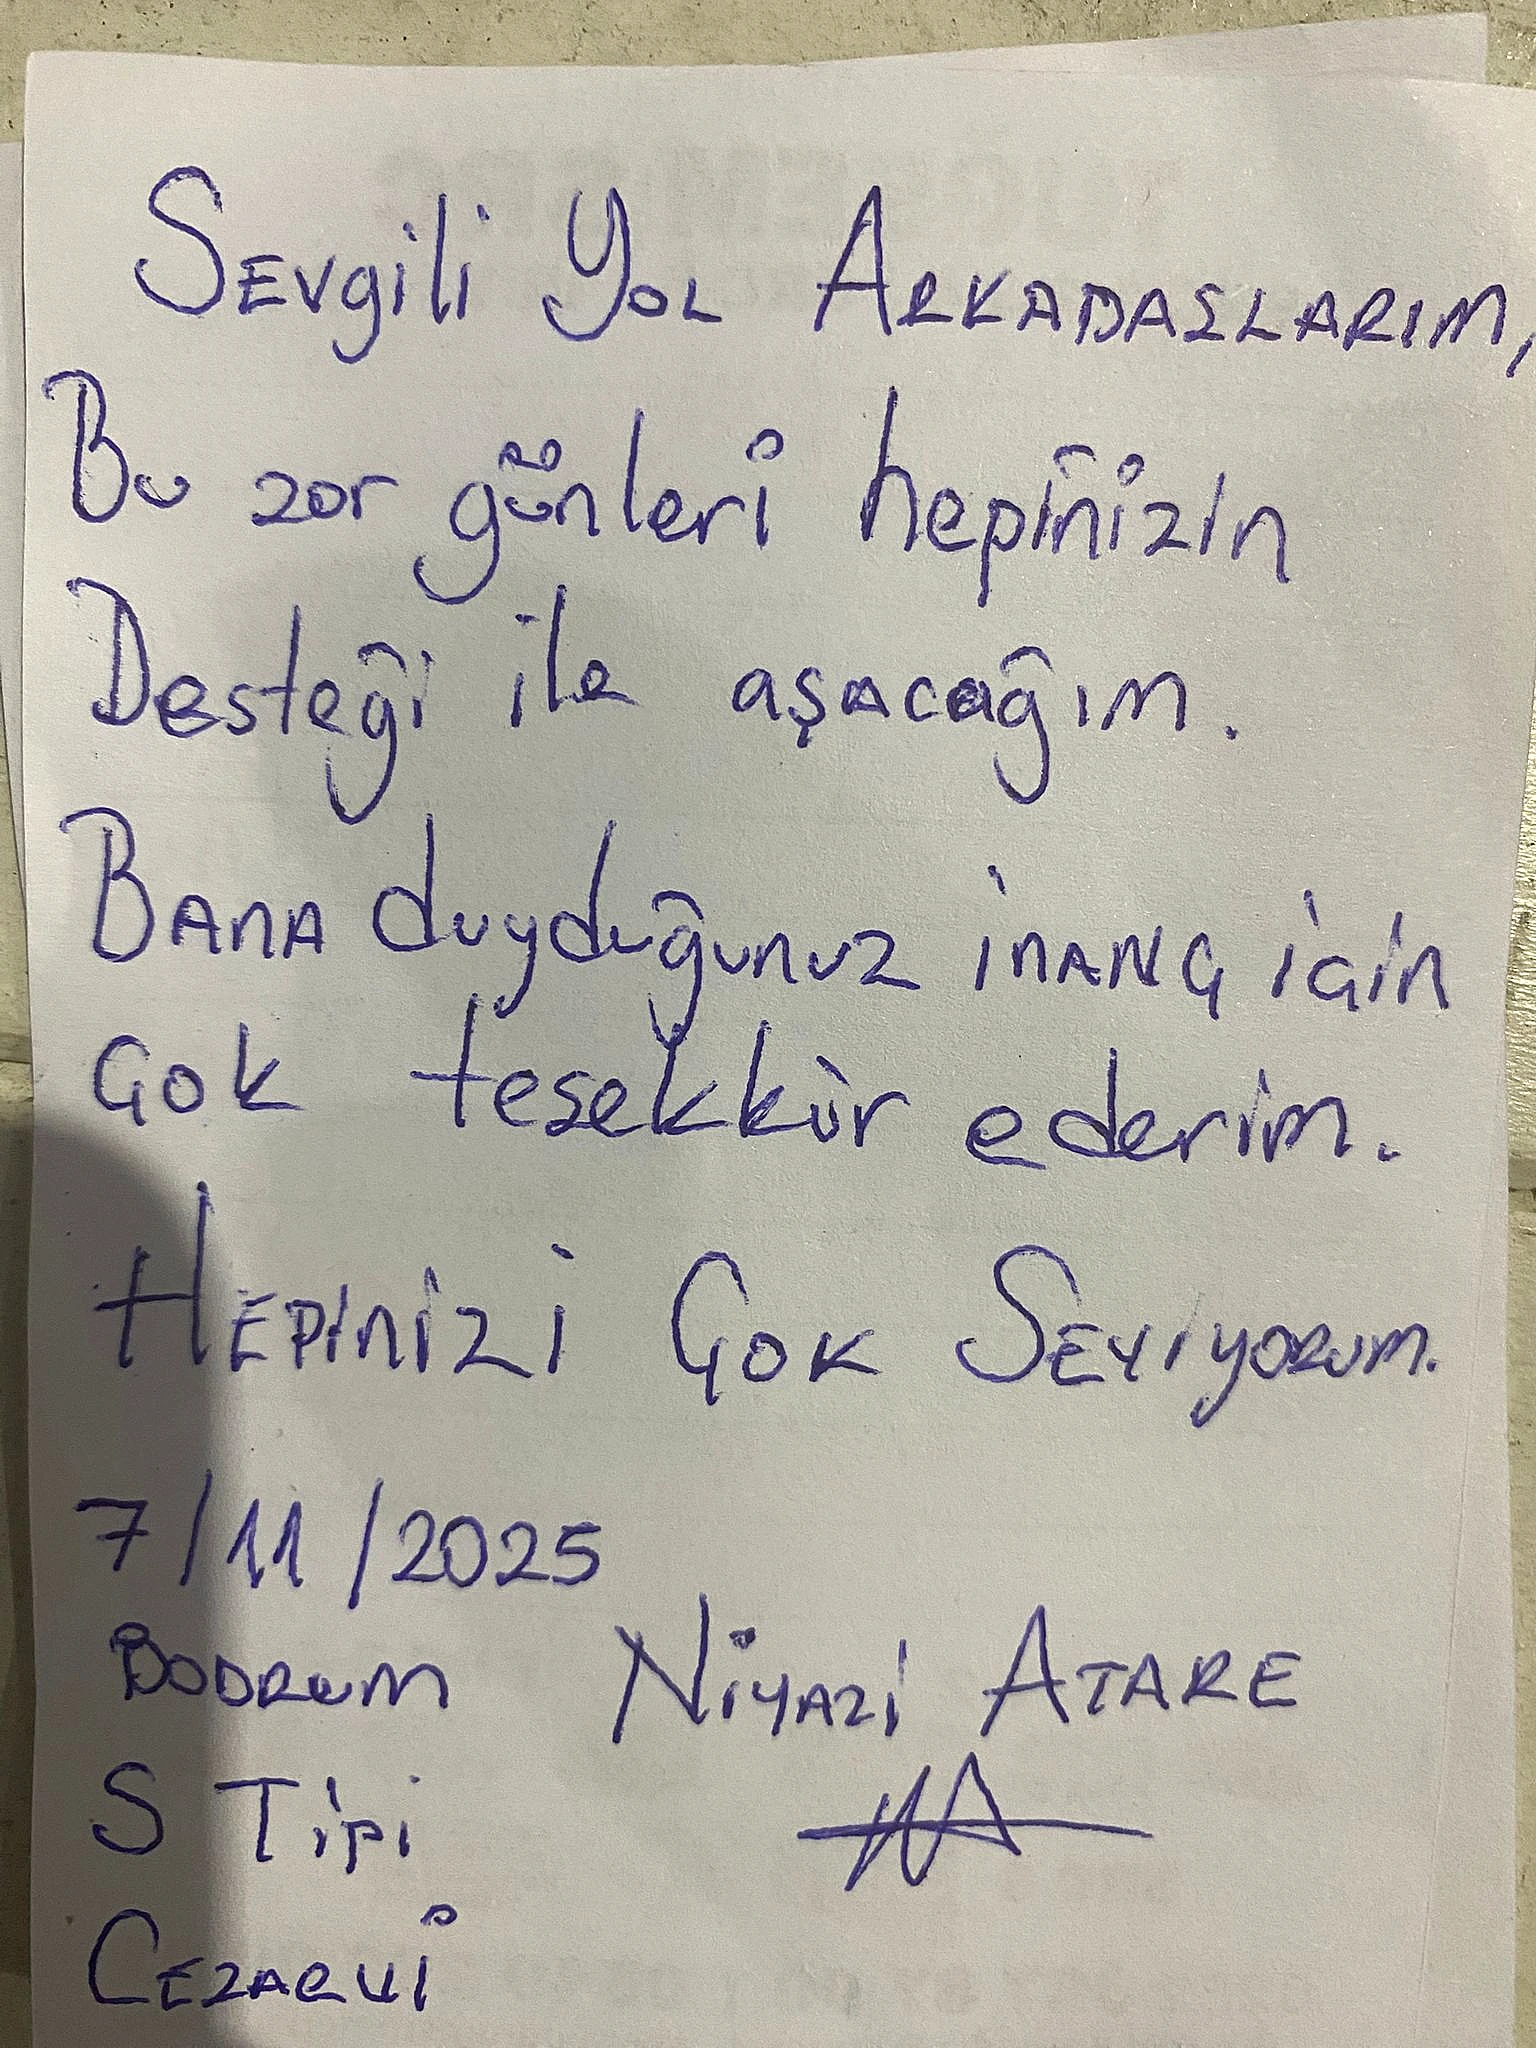 Sevgili Yol ARKADAŞLARIM,
Bu zor günleri hepinizin
Desteği ile aşacağım.
BANA duyduğunuz inanç için
Çok teşekkür ederim.
HEPİNİZİ ÇOK SEVİYORUM.
7/11/2025
BODRUM NİYAZİ ATARE
S TİPİ
CEZAEVİ